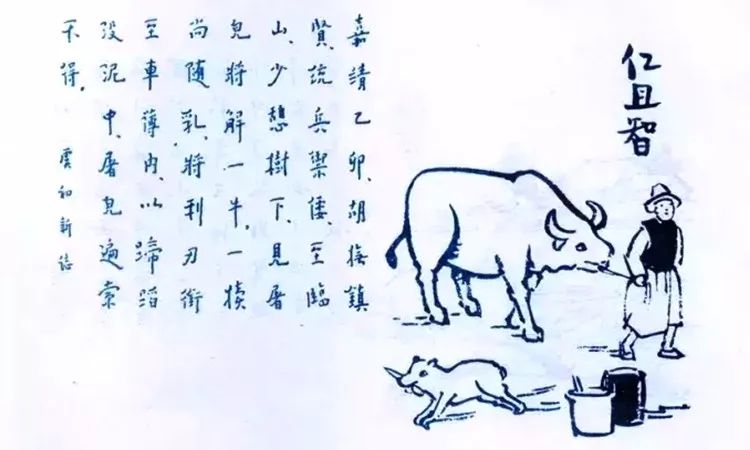 仁且智
嘉靖乙卯、胡按鎮
賢、統兵禦倭、至臨
山、少憩樹下、見屠
兒將解一牛、一犢
尚隨乳、將利刃銜
至車薄內、以蹄蹈
沒泥中、屠兒遍索
不得。
虞初新誌